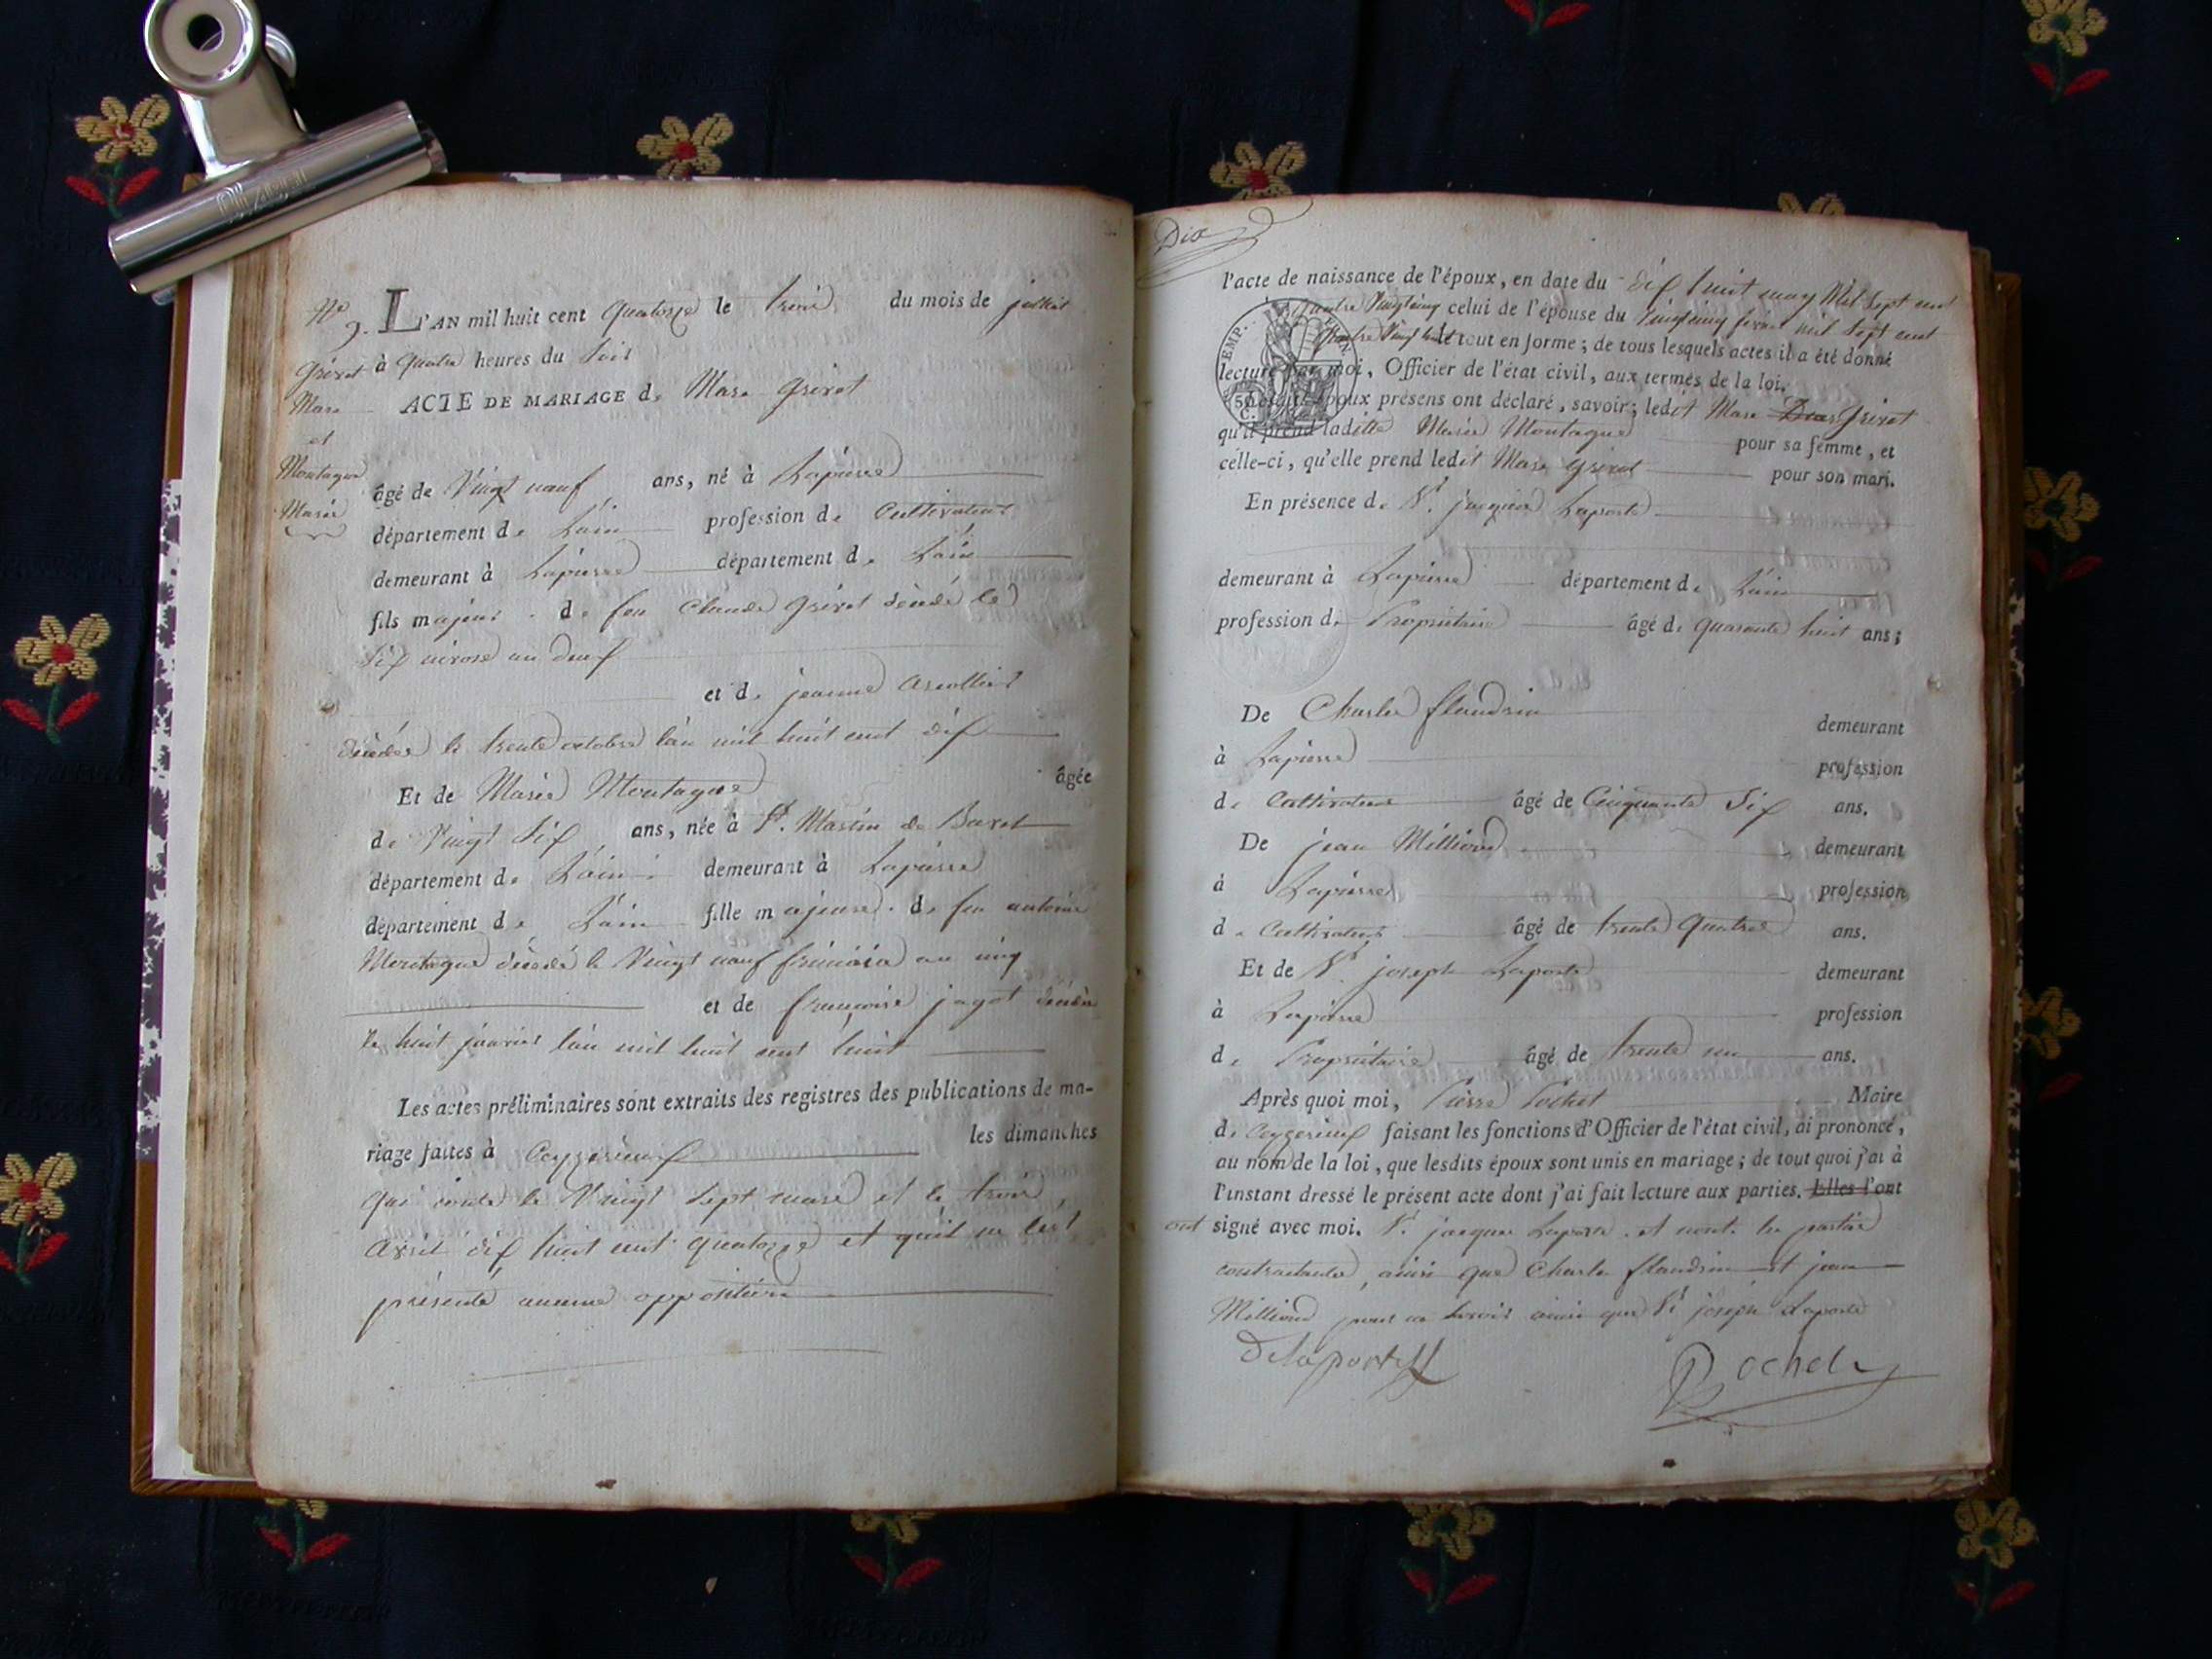 N.º 9.
Grivet
Marc
et
Montague
Marie
L'AN mil huit cent quatorze le trois du mois de juillet
à quatre heures du soir
ACTE DE MARIAGE de Marc Grivet
âgé de Vingt neuf ans, né à Lapierre
département de Lain profession de Cultivateur
demeurant à Lapierre département de Lain
fils majeur de feu Claude Grivet décédé le
dix nivose an deux
et de jeanne
décédée le trente octobre lan mil huit cent dix
Et de Marie Montague âgée
de Vingt six ans, née à St. Martin de Bavel
département de Lain demeurant à Lapierre
département de Lain fille majeure de feu antoine
Montague décédé le Vingt neuf frimaire an cinq
et de françoise jagot décédée
le huit janvier lan mil huit cent huit
Les actes préliminaires sont extraits des registres des publications de ma-
riage faites à Ceyzerieux les dimanches
qui conte le Vingt sept mars et le trois
avril dix huit cent quatorze et quil ne sest
présenté aucune opposition
Dix
l'acte de naissance de l'époux, en date du dix huit may Mil Sept cent
quatre Vingt cinq celui de l'épouse du Vingt cinq mil sept cent
quatre Vingt huit le tout en forme; de tous lesquels actes il a été donné
lecture par moi, Officier de l'état civil, aux termes de la loi.
Lesdits époux présens ont déclaré, savoir; ledit Marc Grivet
qu'il prend ladite Marie Montague pour sa femme, et
celle-ci, qu'elle prend ledit Marc Grivet pour son mari.
En présence de Sr. jacques Laporte
demeurant à Lapierre département de Lain
profession de Propriétaire âgé de quarante huit ans;
De Charles flandrin demeurant
à Lapierre profession
de Cultivateur âgé de Cinquante Six ans.
De jean Milliond demeurant
à Lapierre profession
de Cultivateur âgé de trente quatre ans.
Et de Sr. joseph Laporte demeurant
à Lapierre profession
de Propriétaire âgé de trente un ans.
Après quoi moi, Pierre Pochet Maire
de Ceyzerieux faisant les fonctions d'Officier de l'état civil, ai prononcé,
au nom de la loi, que lesdits époux sont unis en mariage; de tout quoi j'ai à
l'instant dressé le présent acte dont j'ai fait lecture aux parties. Elles l'ont
ont signé avec moi. Sr. jacques Laporte et nont les parties
contractantes, ainsi que Charles flandrin et jean
Milliond pour ne savoir ainsi que Sr joseph Laporte
Delaporte
Pochet
EMP.
50
C.